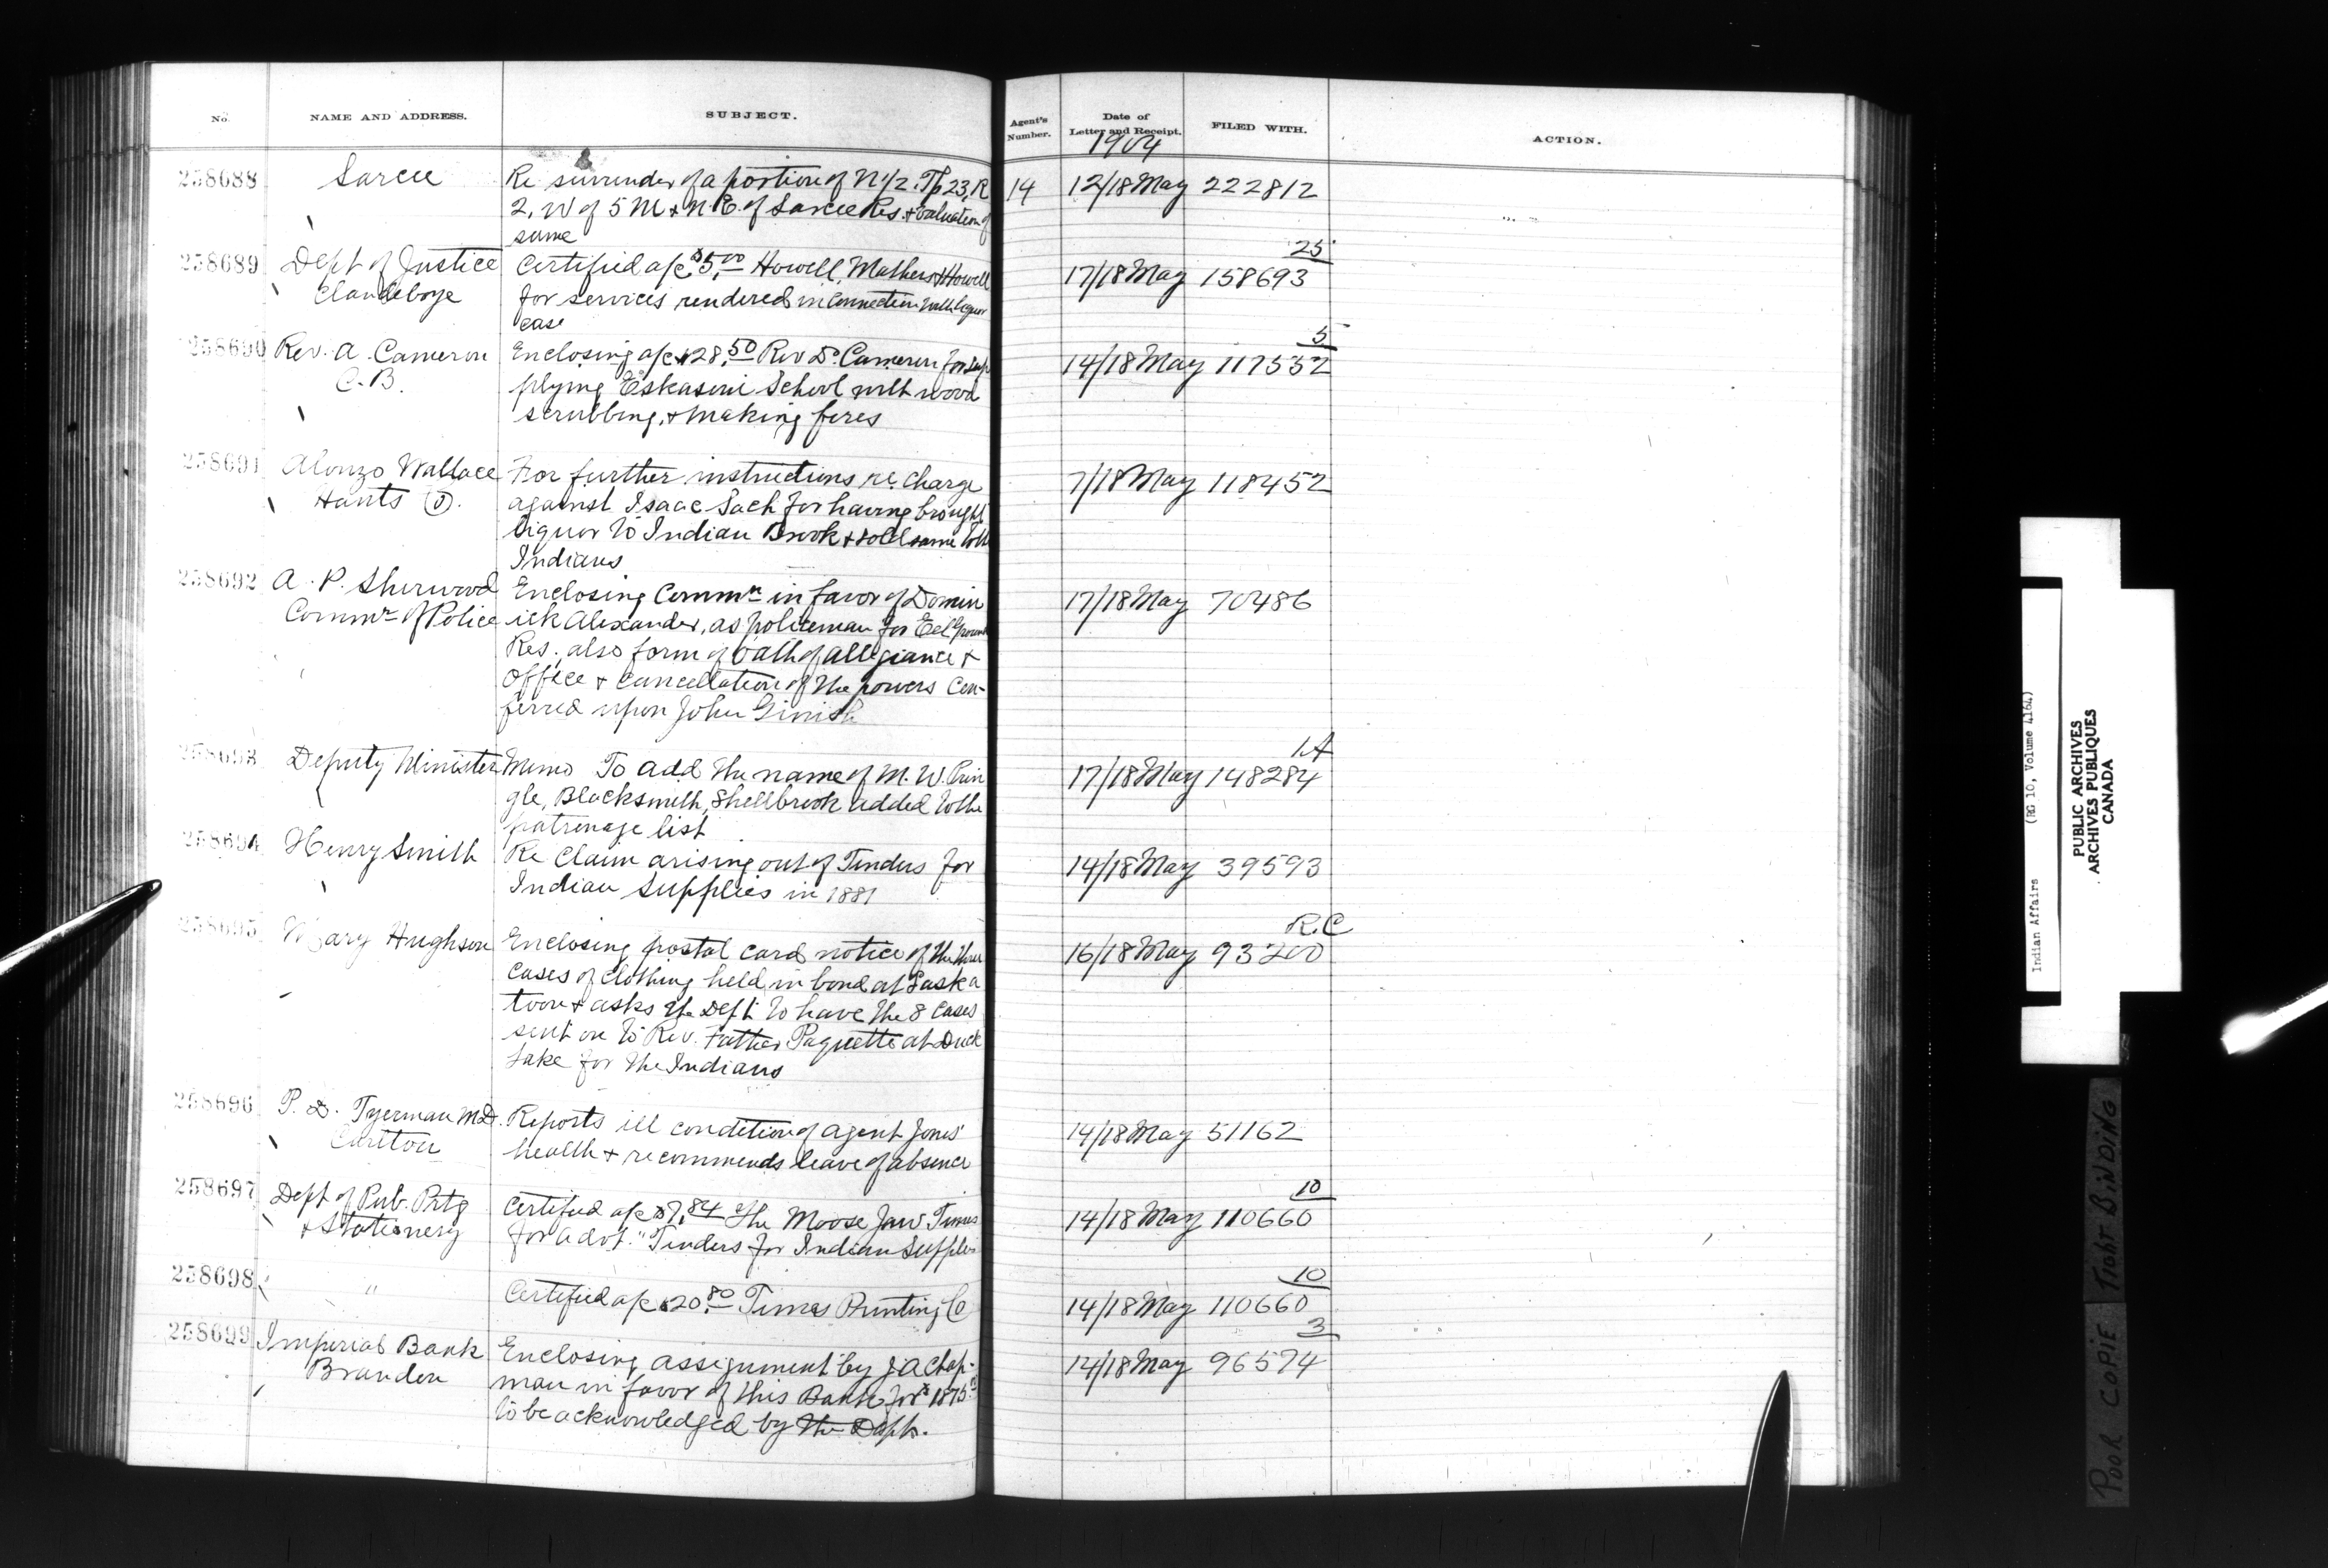 No. NAME AND ADDRESS. SUBJECT. Agent's Number. Date of Letter and Receipt. FILED WITH. ACTION.
1904
258688 Sarcee Re surrender of a portion of N 1/2. Tp 23, R 14 12/18 May 222812
2, W of 5 M & N.E. of Sarcee Res. & valuation of
same
258689 Dept of Justice Certified a/c $5.00 Howell, Mathers & Howell 17/18 May 158693 25
Clandeboye for services rendered in connection with liquor
case
258690 Rev. A. Cameron Enclosing a/c $28.50 Rev D. Cameron for sup 14/18 May 117552 5
C.B. plying Eskasoni School with wood
scrubbing, & making fires
258691 Alonzo Wallace For further instructions re. charge 7/18 May 118452
Hants (O). against Isaac Sack for having brought
liquor to Indian Brook & sold same to the
Indians
258692 A. P. Sherwood Enclosing Commn in favor of Domin 17/18 May 70486
Commr of Police ick Alexander, as policeman for Eel Ground
Res., also form of oath of allegiance &
office & cancellation of the powers con-
ferred upon John Ginish
258693 Deputy Minister Memo To add the name of M. W. Prin 17/18 May 148284 1A
gle, Blacksmith, Shellbrook added to the
patronage list
258694 Henry Smith Re claim arising out of Tenders for 14/18 May 39593
Indian Supplies in 1881
258695 Mary Hughson Enclosing postal card notice of the three 16/18 May 93200 R.C
cases of clothing held in bond at Saska
toon & asks the Dept to have the 8 cases
sent on to Rev. Father Paquette at Duck
Lake for the Indians
258696 P. D. Tyerman M.D. Reports ill condition of agent Jones' 14/18 May 51162
Carlton health & recommends leave of absence
258697 Dept of Pub. Prtg Certified a/c $7.84 The Moose Jaw Times 14/18 May 110660 10
& Stationery for advt. "Tenders for Indian Supplies
258698 " Certified a/c $20.80 Times Printing Co 14/18 May 110660 10
258699 Imperial Bank Enclosing assignment by J A Chap- 14/18 May 96574 3
Brandon man in favor of this Bank for $1875
to be acknowledged by the Dept.
Indian Affairs (RG 10, Volume 4164)
PUBLIC ARCHIVES
ARCHIVES PUBLIQUES
CANADA
POOR COPIE TIGHT BINDING